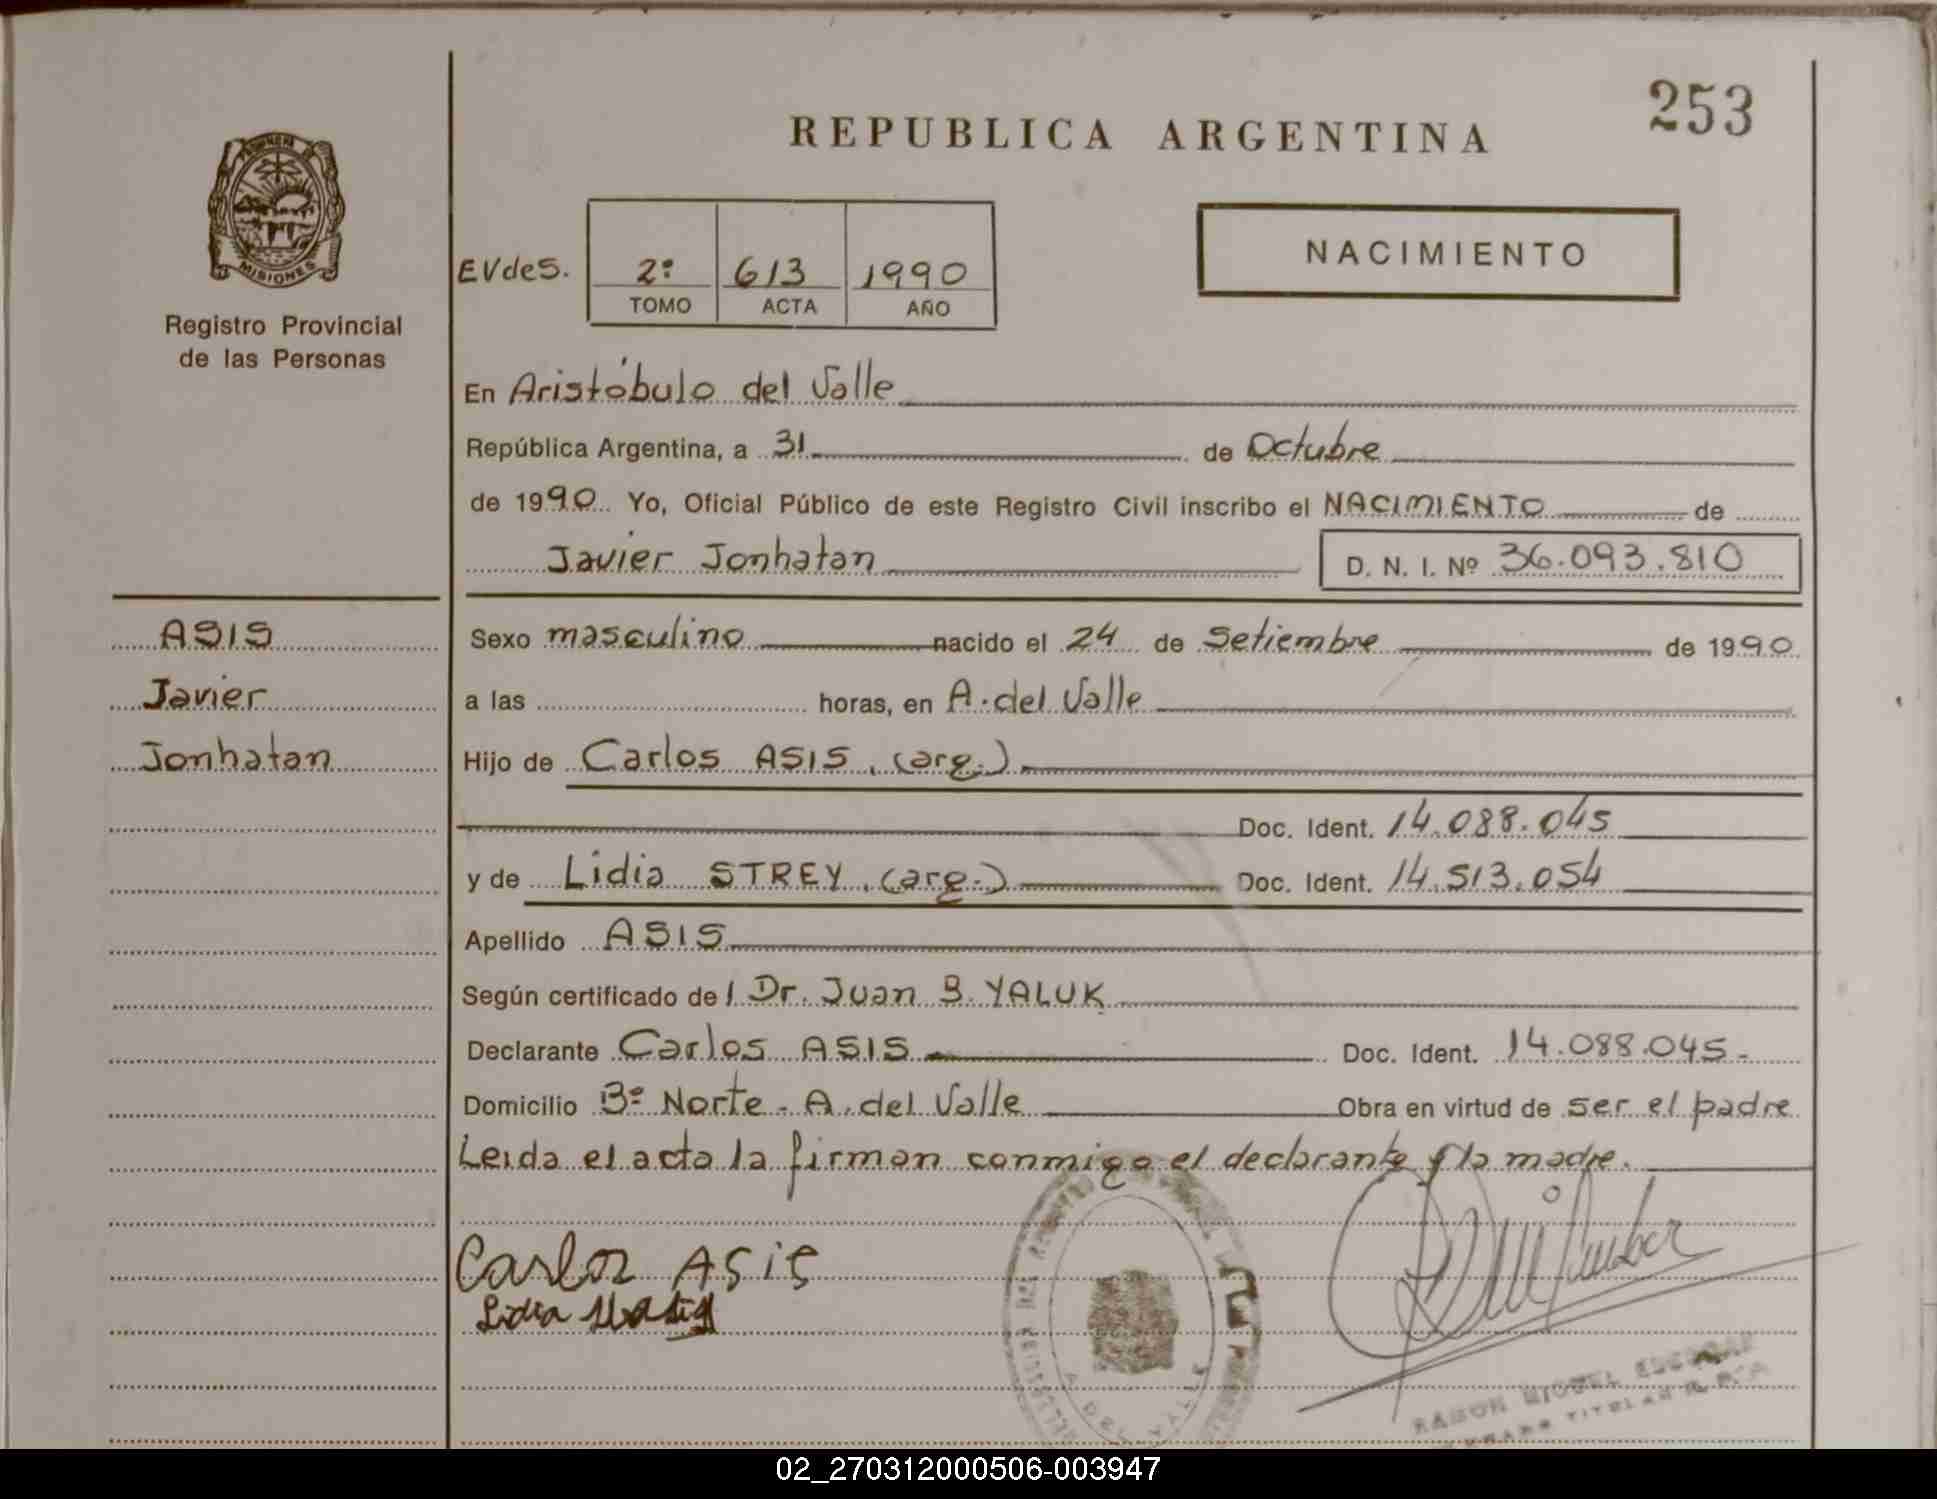 253
REPUBLICA ARGENTINA
MISIONES
Registro Provincial
de las Personas
EVdeS.
2º 613 1990
TOMO ACTA AÑO
NACIMIENTO
En Aristóbulo del Valle
República Argentina, a 31 de Octubre
de 1990 Yo, Oficial Público de este Registro Civil inscribo el NACIMIENTO de
Javier Jonhatan D. N. I. Nº 36.093.810
ASIS
Javier
Jonhatan
Sexo masculino nacido el 24 de Setiembre de 1990
a las horas, en A. del Valle
Hijo de Carlos ASIS, (arg.)
Doc. Ident. 14.088.045
y de Lidia STREY, (arg.) Doc. Ident. 14.513.054
Apellido ASIS
Según certificado del Dr. Juan B. YALUK
Declarante Carlos ASIS Doc. Ident. 14.088.045-
Domicilio Bº Norte - A. del Valle Obra en virtud de ser el padre
Leida el acta la firman conmigo el declarante y la madre.
Carlos Asis
Lidia
RAMON MIGUEL
TITULAR
02_270312000506-003947